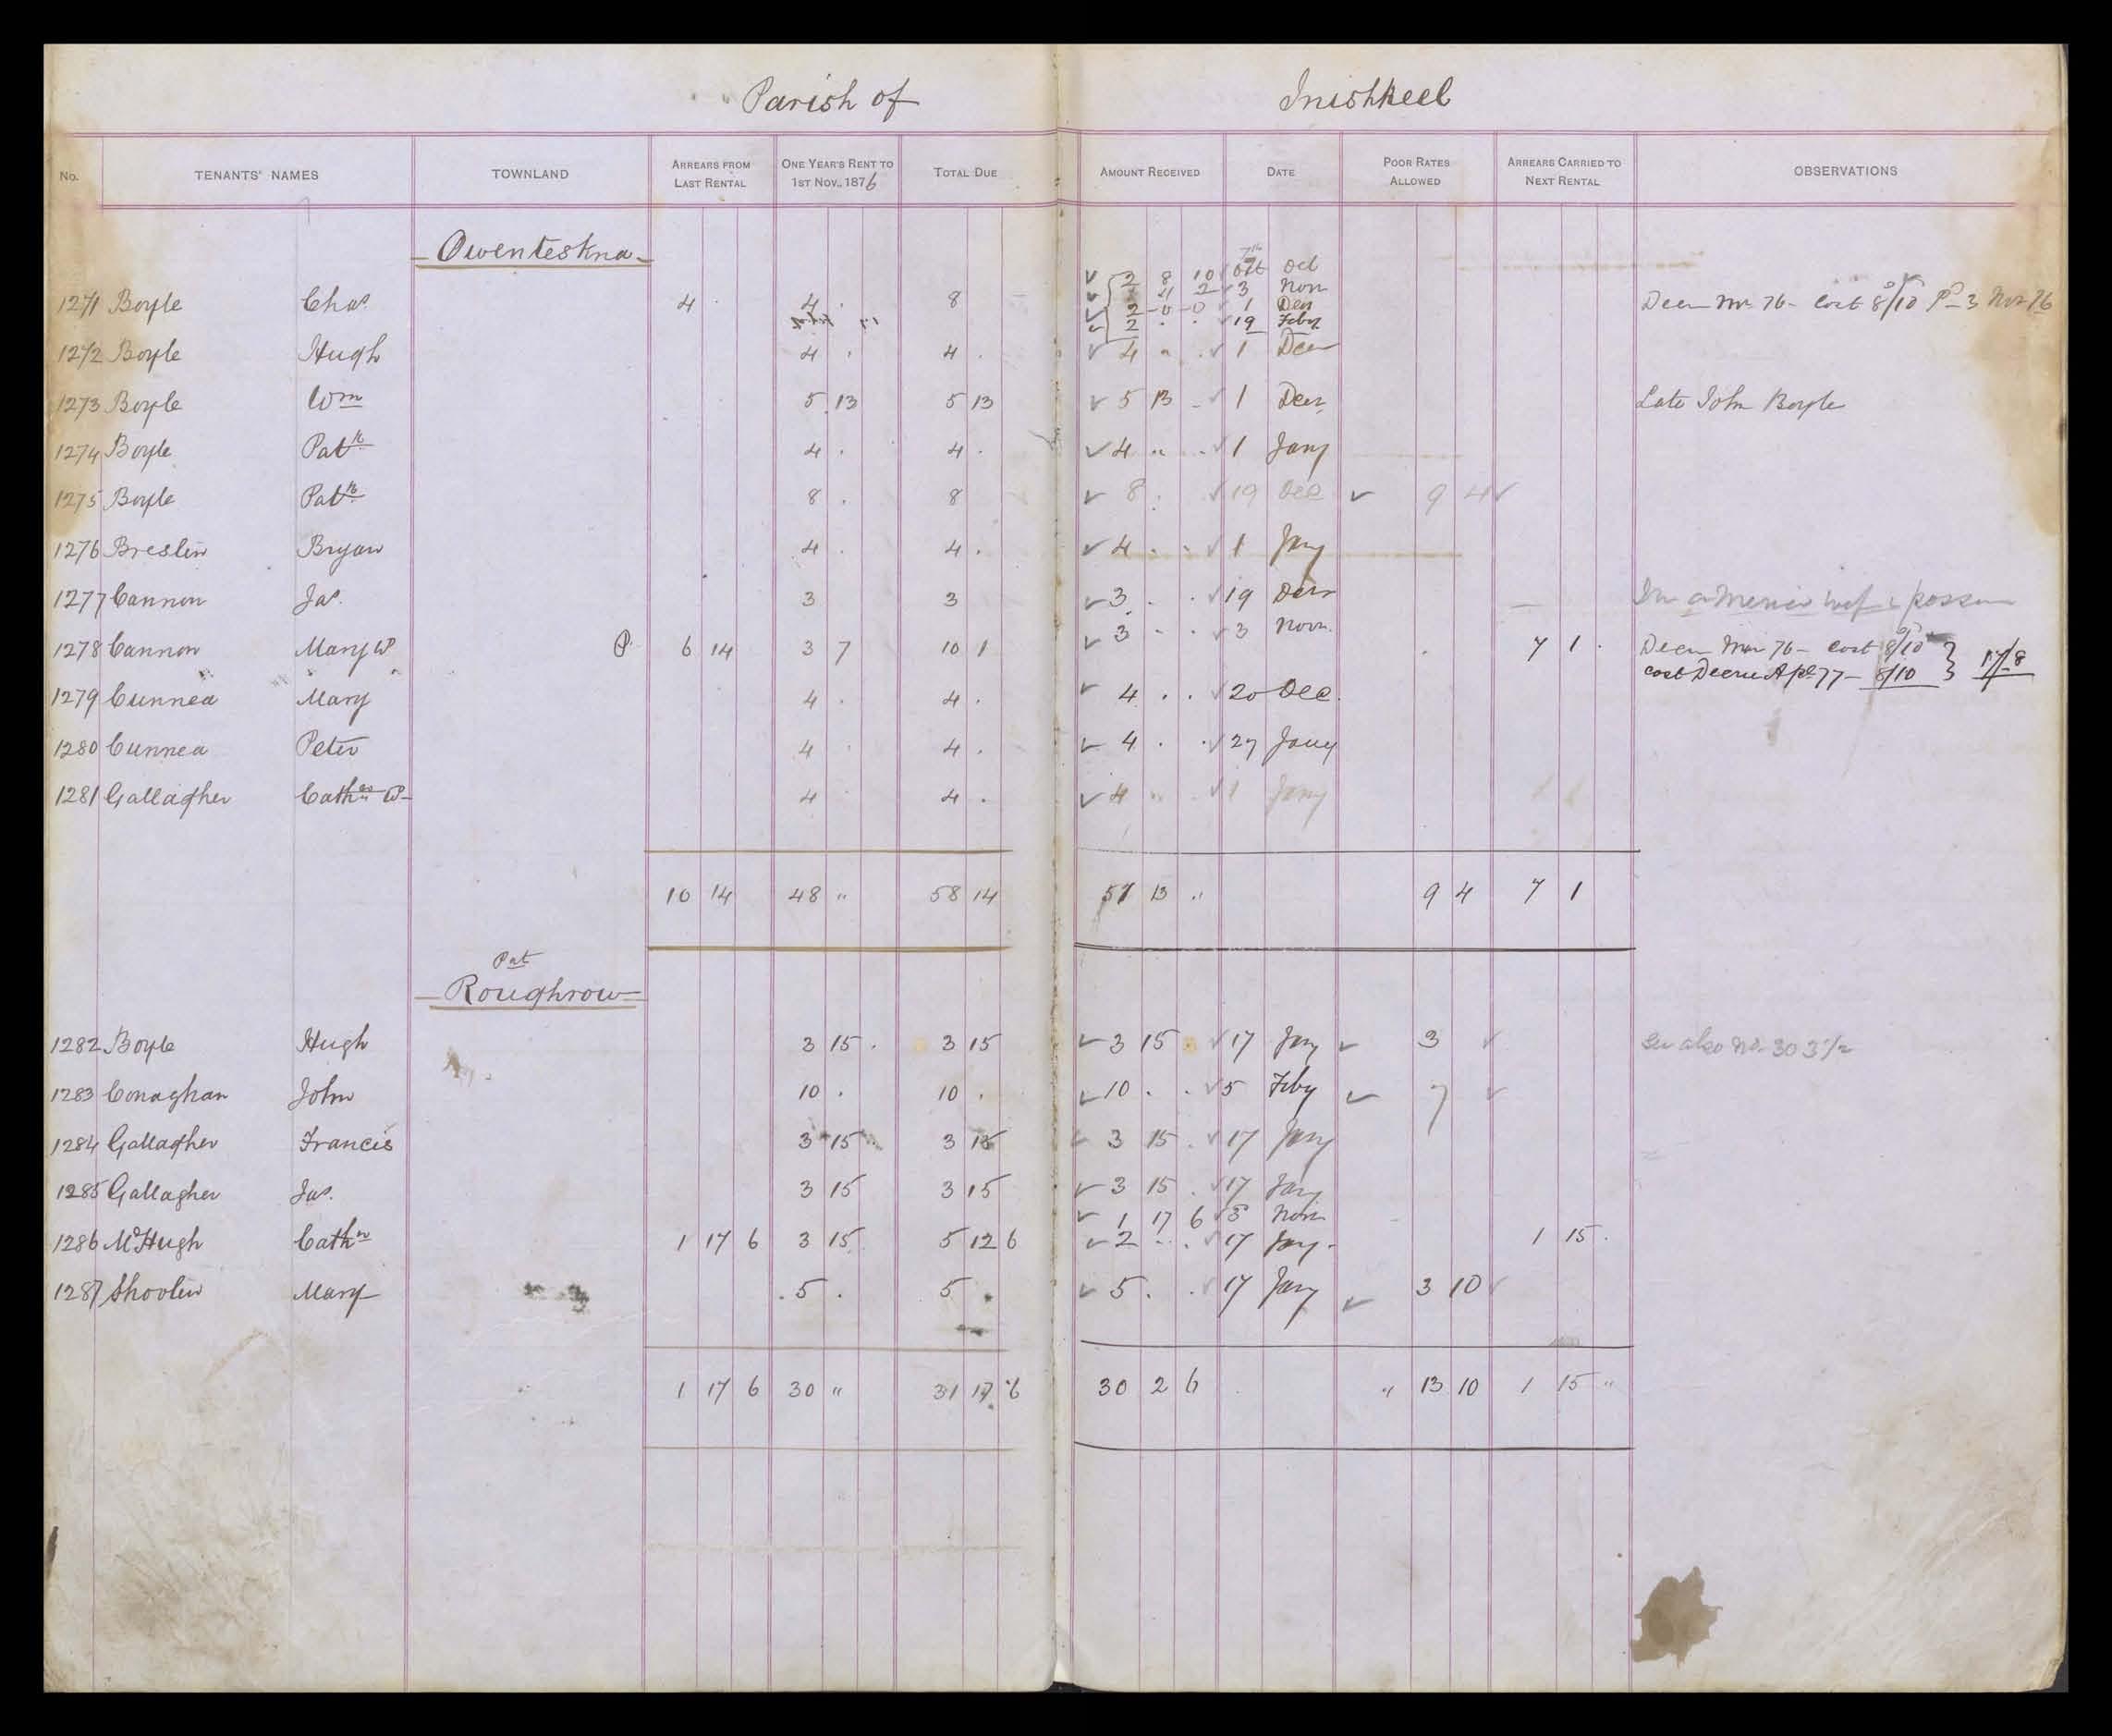 Parish of Inishkeel
No. TENANTS' NAMES TOWNLAND ARREARS FROM LAST RENTAL ONE YEAR'S RENT TO 1ST NOV., 1876 TOTAL DUE AMOUNT RECEIVED DATE POOR RATES ALLOWED ARREARS CARRIED TO NEXT RENTAL OBSERVATIONS
Owenteskna
2 8 10 Oct
4 2 3 Nov
1271 Boyle Chas. 4 . 4 . 8 2 - 0 - 0 1 Decr Cost 8/10 3 Nov 76
2 . . 19 Feby
1272 Boyle Hugh 4 . 4 . 4 " . 1 Decr
1273 Boyle Wm 5 13 5 13 5 13 - 1 Decr Late John Boyle
1274 Boyle Patk 4 . 4 . 4 " . 1 Jany
1275 Boyle Patk 8 . 8 8 . 19 Dec 9 4
1276 Breslin Bryan 4 . 4 . 4 . . 1 Jany
1277 Cannon Jas. 3 3 3 . . 19 Decr In America wife in possn
3 . . 3 Novr.
1278 Cannon Mary W P 6 14 3 7 10 1 7 1 . 76 - Cost 8/10 } 17/8
cost Decree Apl 77 - 8/10
1279 Cunnea Mary 4 . 4 . 4 . . 20 Dec.
1280 Cunnea Peter 4 . 4 . 4 . . 27 Jany
1281 Gallagher Cathne W 4 . 4 . 4 " . 1 Jany
10 14 48 " 58 14 51 13 " 9 4 7 1
Pat
Roughrow
1282 Boyle Hugh 3 15 . 3 15 3 15 17 Jany 3 See also No. 303 1/2
1283 Conaghan John 10 . 10 . 10 . . 5 Feby 7
1284 Gallagher Francis 3 15 3 15 3 15 . 17 Jany
1285 Gallagher Jas. 3 15 3 15 3 15 . 17 Jany
1 17 6 3 Novr
1286 McHugh Cathn 1 17 6 3 15 5 12 6 2 . . 17 Jany. 1 15 .
1287 Shovlin Mary 5 . 5 . 5 . . 17 Jany 3 10
1 17 6 30 " 31 17 6 30 2 6 " 13 10 1 15 "